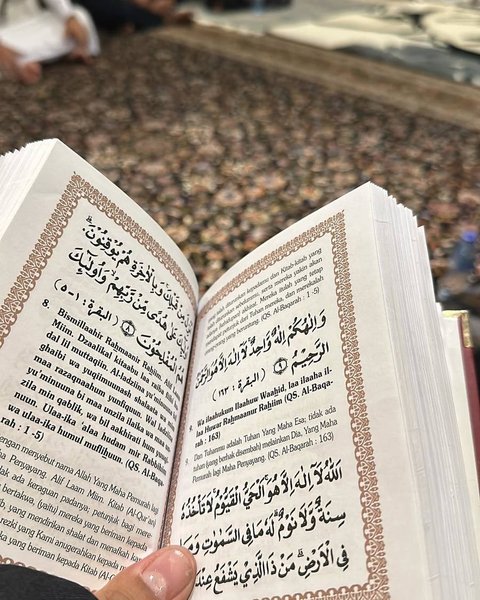 مِنْ قَبْلِكَ وَبِالْاٰخِرَةِ هُمْ يُوْقِنُوْنَۗ
عَلٰى هُدًى مِّنْ رَّبِّهِمْ وَاُولٰۤئِكَ
هُمُ الْمُفْلِحُوْنَ ﴿٨﴾ (البقرة: ١-٥)
8. Bismillaahir Rahmaanir Rahiim. Alif
Miim. Dzaalikal kitaabu laa
dal lil muttaqiin. Al-ladziina yu'minuuna
ghaibi wa yuqiimuunash shalaata wa
maa razaqnaahum yunfiquun.
yu'minuuna bi maa unzila ilaika wa maa
zila min qablik, wa bil aakhirati hum
nuun. Ulaa-ika 'alaa hudam mir Rabbihim
wa ulaa-ika humul muflihuun. (QS. Al-Baqa-
rah : 1 -5)
dengan menyebut nama Allah Yang Maha Pemurah lagi
Maha Penyayang. Alif Laam Miim. Kitab (Al-Qur'an)
tidak ada keraguan padanya; petunjuk bagi mere-
bertakwa, (yaitu) mereka yang beriman kepada
yang mendirikan shalat dan menafkah
rezki yang Kami anugerahkan kepada
mereka yang beriman kepada Kitab (Al-
telah diturunkan kepadamu dan Kitab-kitab yang
diturunkan sebelummu; serta mereka yakin akan
(kehidupan) akhirat. Mereka itulah yang tetap
mendapat petunjuk dari Tuhan mereka, dan merekalah
orang-orang yang beruntung. (QS. Al-Baqarah : 1 -5)
وَاِلٰهُكُمْ اِلٰهٌ وَّاحِدٌ لَآ اِلٰهَ اِلَّا هُوَ الرَّحْمٰنُ
الرَّحِيْمُ ﴿٩﴾ (البقرة: ١٦٣)
9. Wa ilaahukum ilaahuw Waahid, laa ilaaha il-
la Huwar Rahmaanur Rahiim (QS. Al-Baqa-
rah : 163)
Dan Tuhanmu adalah Tuhan Yang Maha Esa; tidak ada
tuhan (yang berhak disembah) melainkan Dia, Yang Maha
Pemurah lagi Maha Penyayang. (QS. Al-Baqarah : 163)
اَللهُ لَآ اِلٰهَ اِلَّا هُوَ الْحَيُّ الْقَيُّوْمُ لَا تَأْخُذُهُ
سِنَةٌ وَّلَا نَوْمٌ لَهُ مَا فِى السَّمٰوٰتِ وَمَا
فِى الْاَرْضِ مَنْ ذَا الَّذِيْ يَشْفَعُ عِنْدَ